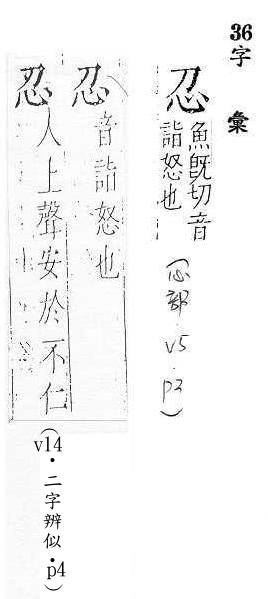 36字彙
魚旣切音
詣怒也
(心部.v5.p2)
音詣怒也
忍人上聲安於不仁
(v14•二字辨似•p4)